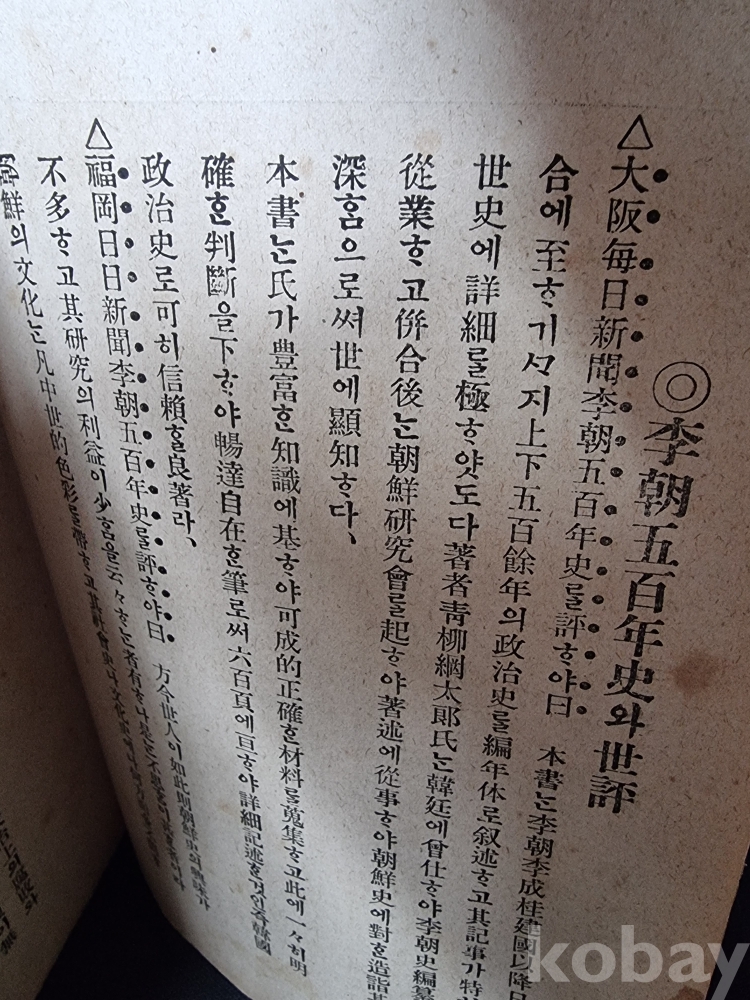 ◎李朝五百年史와世評
△大阪每日新聞李朝五百年史를評ᄒᆞ야曰 本書ᄂᆞᆫ李朝李成桂建國以降日
合에至ᄒᆞ기ᄭᆞ지上下五百餘年의政治史를編年体로叙述ᄒᆞ고其記事가特
世史에詳細를極ᄒᆞ얏도다著者靑柳綱太郞氏ᄂᆞᆫ韓廷에曾仕ᄒᆞ야李朝史編纂
從業ᄒᆞ고倂合後ᄂᆞᆫ朝鮮硏究會를起ᄒᆞ야著述에從事ᄒᆞ야朝鮮史에對ᄒᆞᆫ造詣
深ᄒᆞᆷ으로써世에顯知ᄒᆞ다、
本書ᄂᆞᆫ氏가豊富ᄒᆞᆫ知識에基ᄒᆞ야可成的正確ᄒᆞᆫ材料를蒐集ᄒᆞ고此에一々히明
確ᄒᆞᆫ判斷을下ᄒᆞ야暢達自在ᄒᆞᆫ筆로써六百頁에亘ᄒᆞ야詳細記述ᄒᆞᆫ것인즉韓國
政治史로可히信賴ᄒᆞᆯ良著라、
△福岡日日新聞李朝五百年史를評ᄒᆞ야曰 方今世人이如此則朝鮮史의興味가
不多ᄒᆞ고其硏究의利益이少ᄒᆞᆷ을云々ᄒᆞᄂᆞᆫ者有ᄒᆞ나
朝鮮의文化ᄂᆞᆫ凡中世的色彩를帶ᄒᆞ고其社會史나文化史
kobay